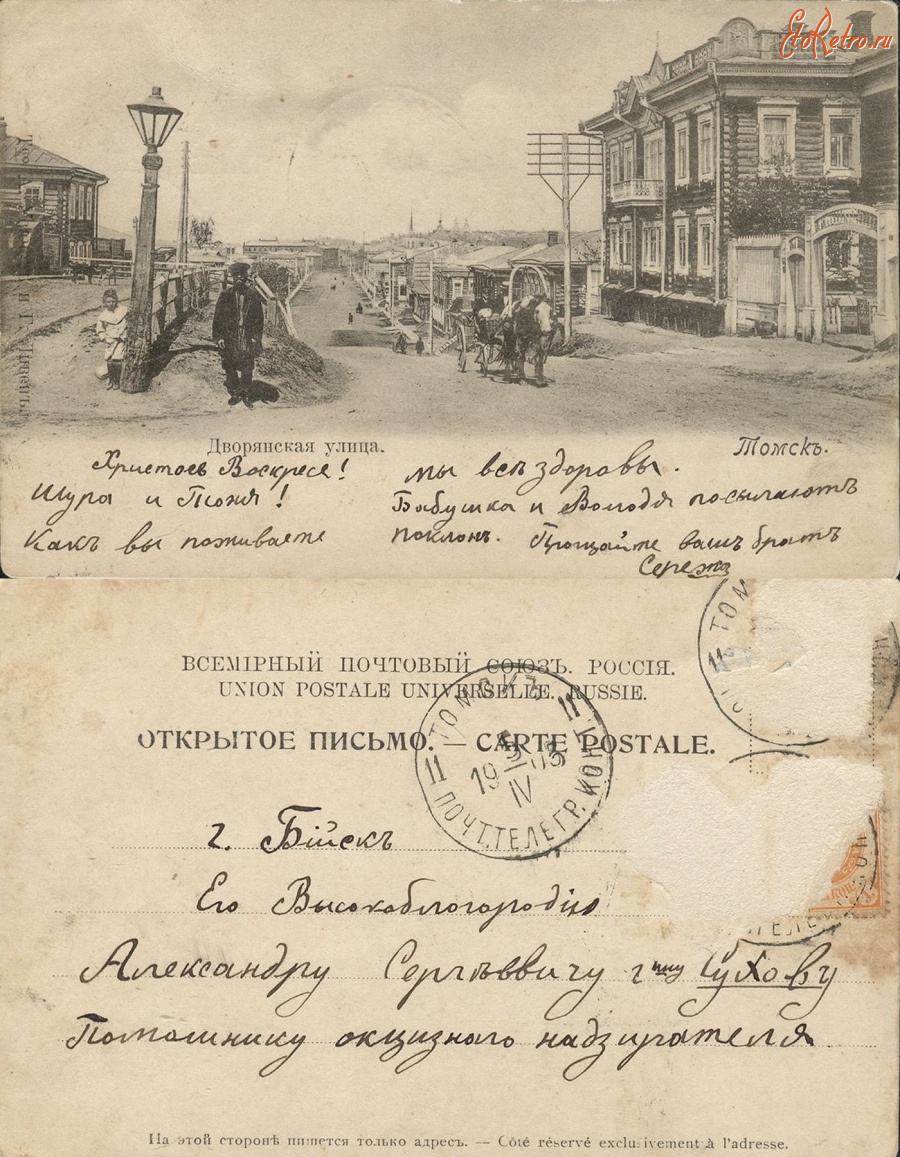 EtoRetro.ru
Дворянская улица.
Томскъ.
Христосъ Воскресе!
Шура и Тоня!
Какъ вы поживаете
мы всѣ здоровы.
Бабушка и Володя посылаютъ
поклонъ. Прощайте вашъ братъ
Сережа
ВСЕМІРНЫЙ ПОЧТОВЫЙ СОЮЗЪ. РОССІЯ.
UNION POSTALE UNIVERSELLE. RUSSIE.
ОТКРЫТОЕ ПИСЬМО. — CARTE POSTALE.
ТОМСКЪ
11 11
5
19 03
IV
ПОЧТ.ТЕЛЕГР. КОНТ.
г. Бійскъ
Его Высокоблогородію
Александру Сергѣевичу г-ну Сухову
Помошнику окцизного надзирателя
На этой сторонѣ пишется только адресъ. — Côté réservé exclusivement à l'adresse.